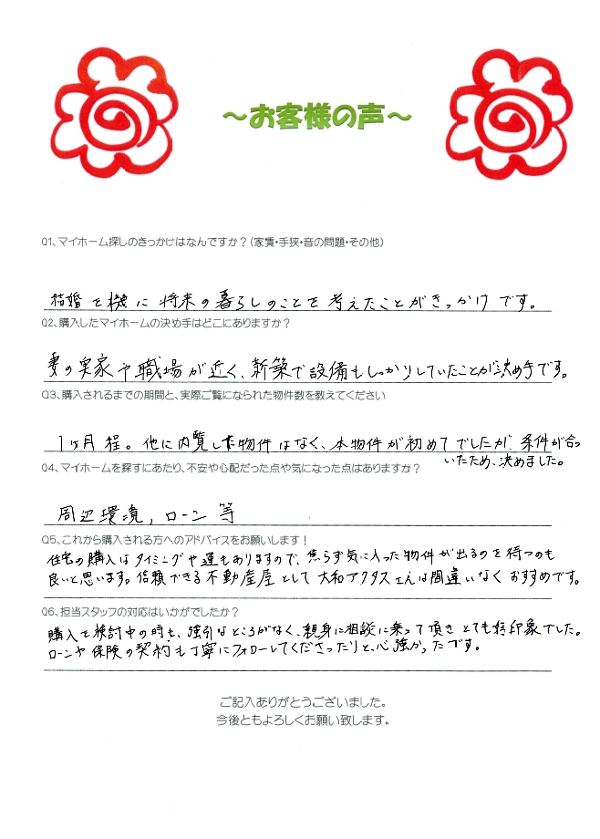 ～お客様の声～
Q1、マイホーム探しのきっかけはなんですか？（家賃・手狭・音の問題・その他）
結婚を機に将来の暮らしのことを考えたことがきっかけです。
Q2、購入したマイホームの決め手はどこにありますか？
妻の実家や職場が近く、新築で設備もしっかりしていたことが決め手です。
Q3、購入されるまでの期間と、実際ご覧になられた物件数を教えてください
1ヶ月程。他に内覧した物件はなく、本物件が初めてでしたが、条件が合っ
ていたため、決めました。
Q4、マイホームを探すにあたり、不安や心配だった点や気になった点はありますか？
周辺環境，ローン等
Q5、これから購入される方へのアドバイスをお願いします！
住宅の購入はタイミングや運もありますので、焦らず気に入った物件が出るのを待つのも
良いと思います。信頼できる不動産屋として大和アクタスさんは間違いなくおすすめです。
Q6、担当スタッフの対応はいかがでしたか？
購入を検討中の時も、強引なところがなく、親身に相談に乗って頂きとても好印象でした。
ローンや保険の契約も丁寧にフォローしてくださったりと、心強かったです。
ご記入ありがとうございました。
今後ともよろしくお願い致します。